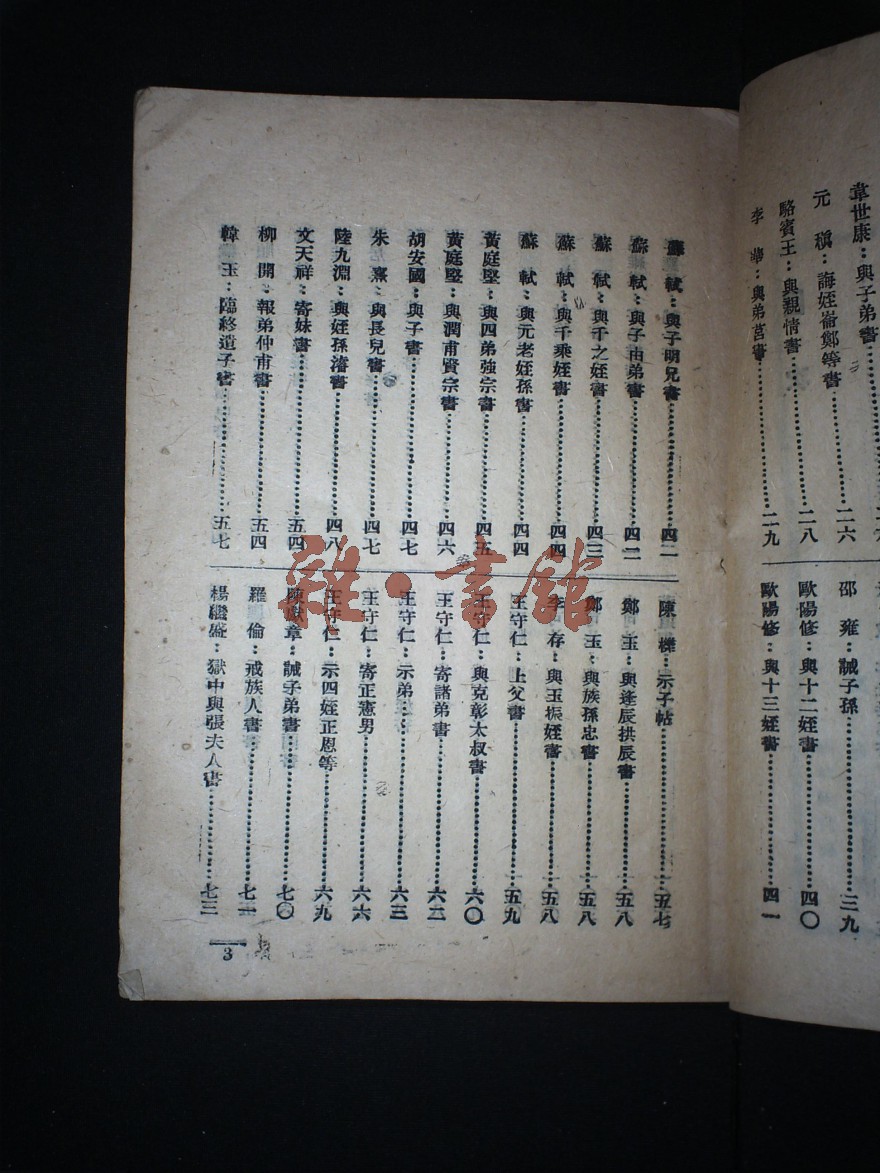 韋世康：與子弟書
元稹：誨姪崙鄭等書……二六
駱賓王：與親情書……二八
李華：與弟莒書……二九
邵雍：誡子孫……三九
歐陽修：與十二姪書……四〇
歐陽修：與十三姪書……四一
蘇軾：與子明兄書……四二
蘇軾：與子由弟書……四二
蘇軾：與千之姪書……四三
蘇軾：與千乘姪書……四四
蘇軾：與元老姪孫書……四四
黃庭堅：與四弟強宗書……四五
黃庭堅：與潤甫賢宗書……四六
胡安國：與子書……四七
朱熹：與長兒書……四七
陸九淵：與姪孫濬書……四八
文天祥：寄妹書……五四
柳開：報弟仲甫書……五四
韓玉：臨終遺子書……五七
陳櫟：示子帖……五七
鄭玉：與逢辰拱辰書……五八
鄭玉：與族孫忠書……五八
李存：與玉振姪書……五八
王守仁：上父書……五九
王守仁：與克彰太叔書……六〇
王守仁：寄諸弟書……六二
王守仁：示弟……六三
王守仁：寄正憲男……六六
王守仁：示四姪正恩等……六九
陳獻章：誡子弟書……七〇
羅倫：戒族人書……七一
楊繼盛：獄中與張夫人書……七三
3
雜·書館